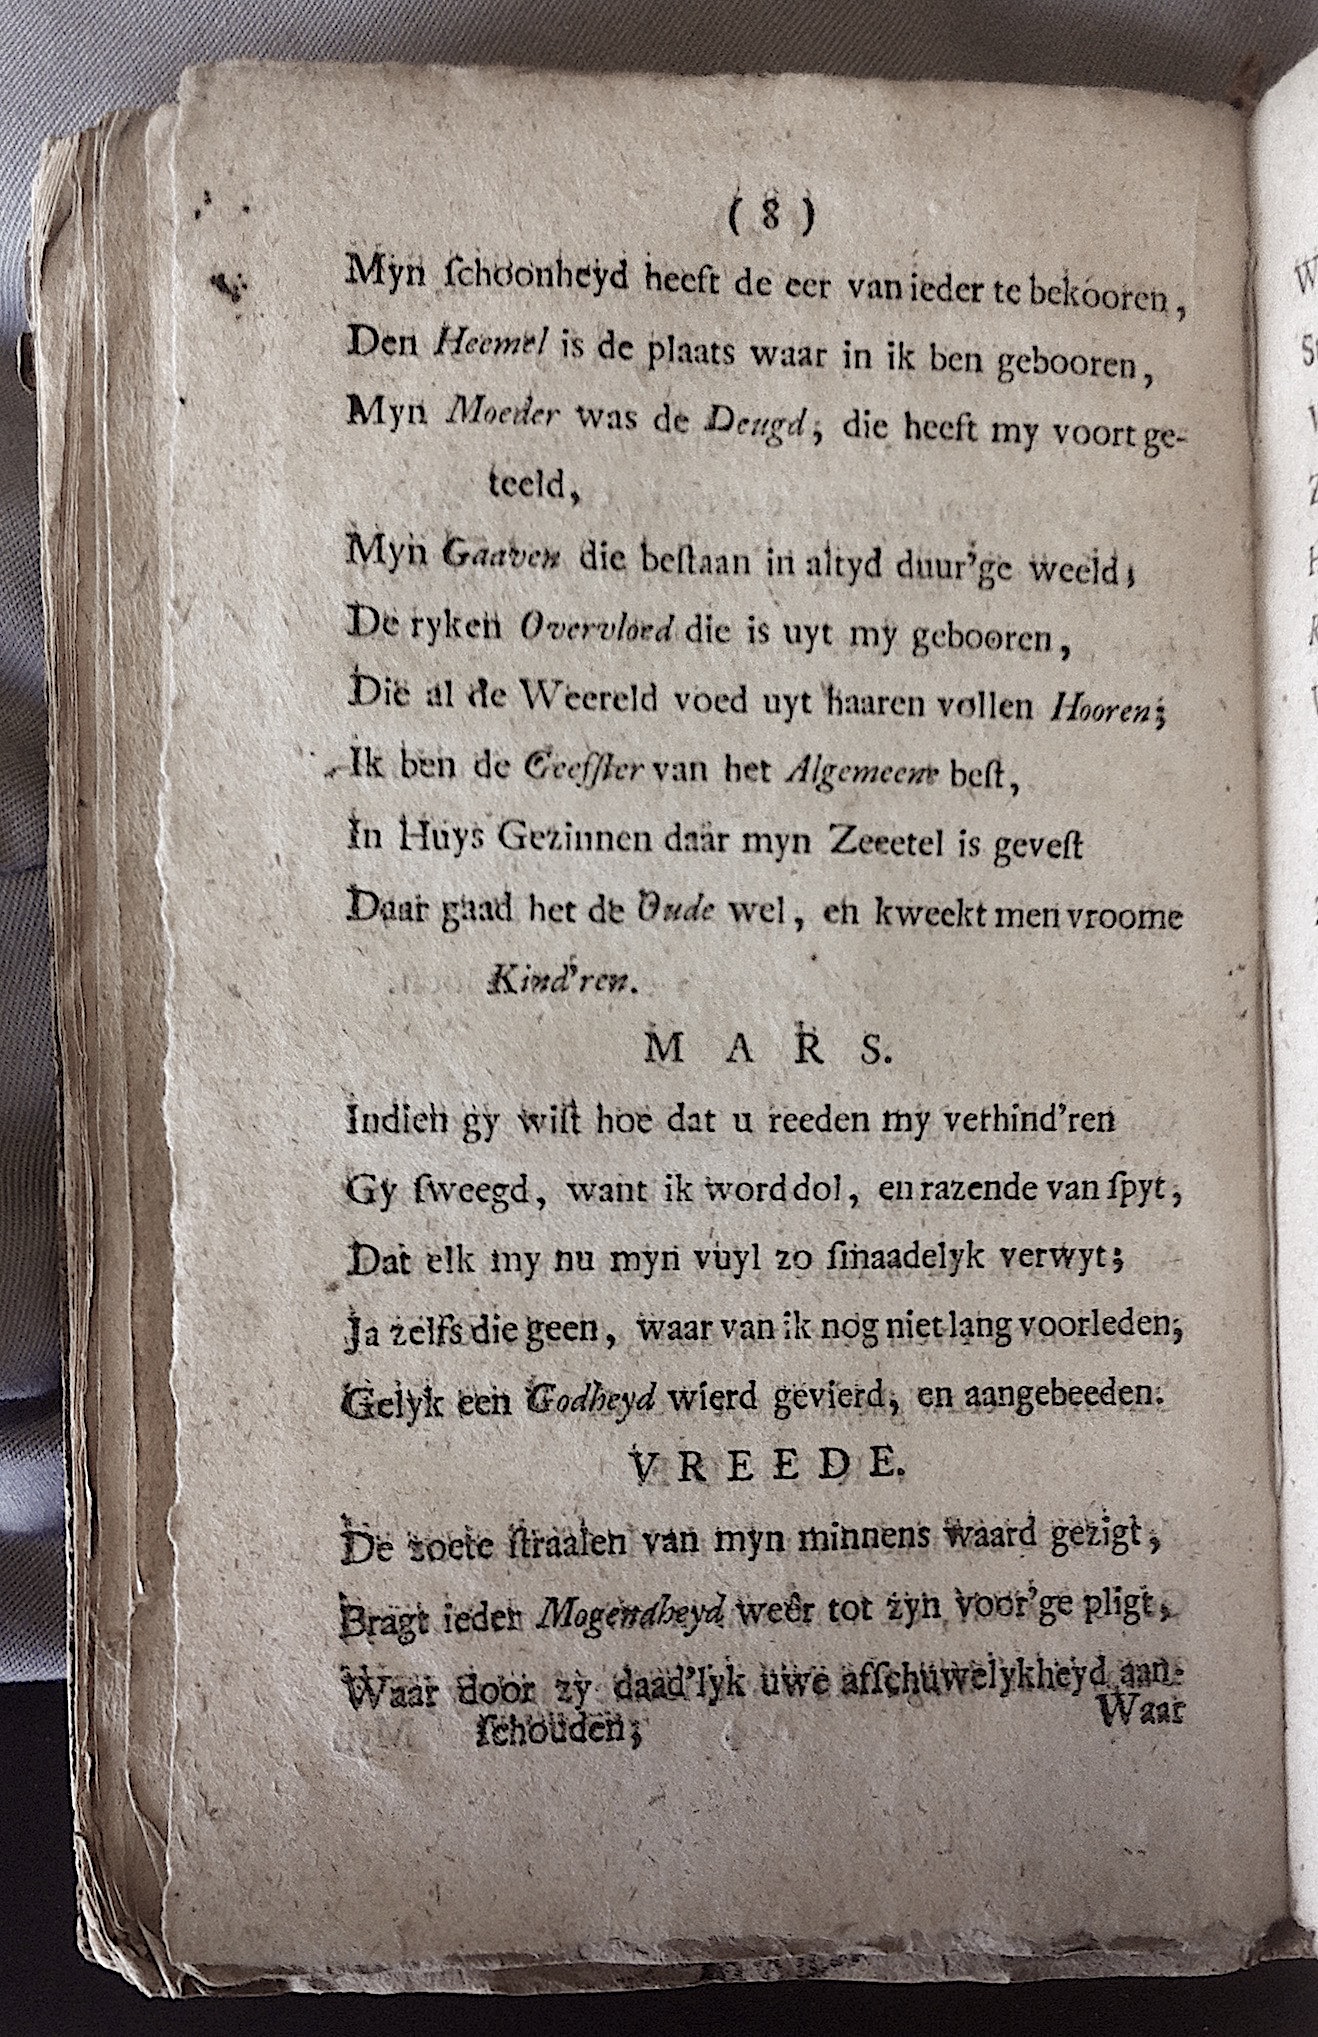 ( 8 )
Myn ſchoonheyd heeft de eer van ieder te bekooren,
Den Heemel is de plaats waar in ik ben gebooren,
Myn Moeder was de Deugd; die heeft my voort ge-
teeld,
Myn Gaaven die beſtaan in altyd duur'ge weeld;
De ryken Overvloed die is uyt my gebooren,
Die al de Weereld voed uyt haaren vollen Hooren;
Ik ben de Geefſter van het Algemeene beſt,
In Huys Gezinnen daar myn Zeeetel is geveſt
Daar gaad het de Oude wel, en kweekt men vroome
Kind'ren.
MARS.
Indien gy wiſt hoe dat u reeden my verhind'ren
Gy ſweegd, want ik word dol, en razende van ſpyt,
Dat elk my nu myn vuyl zo ſmaadelyk verwyt;
Ja zelfs die geen, waar van ik nog niet lang voorleden,
Gelyk een Godheyd wierd gevierd, en aangebeeden.
VREEDE.
De zoete ſtraalen van myn minnens waard gezigt,
Bragt ieder Mogendheyd weêr tot zyn voor'ge pligt,
Waar door zy daad'lyk uwe afſchuwelykheyd aan-
ſchouden;
Waar